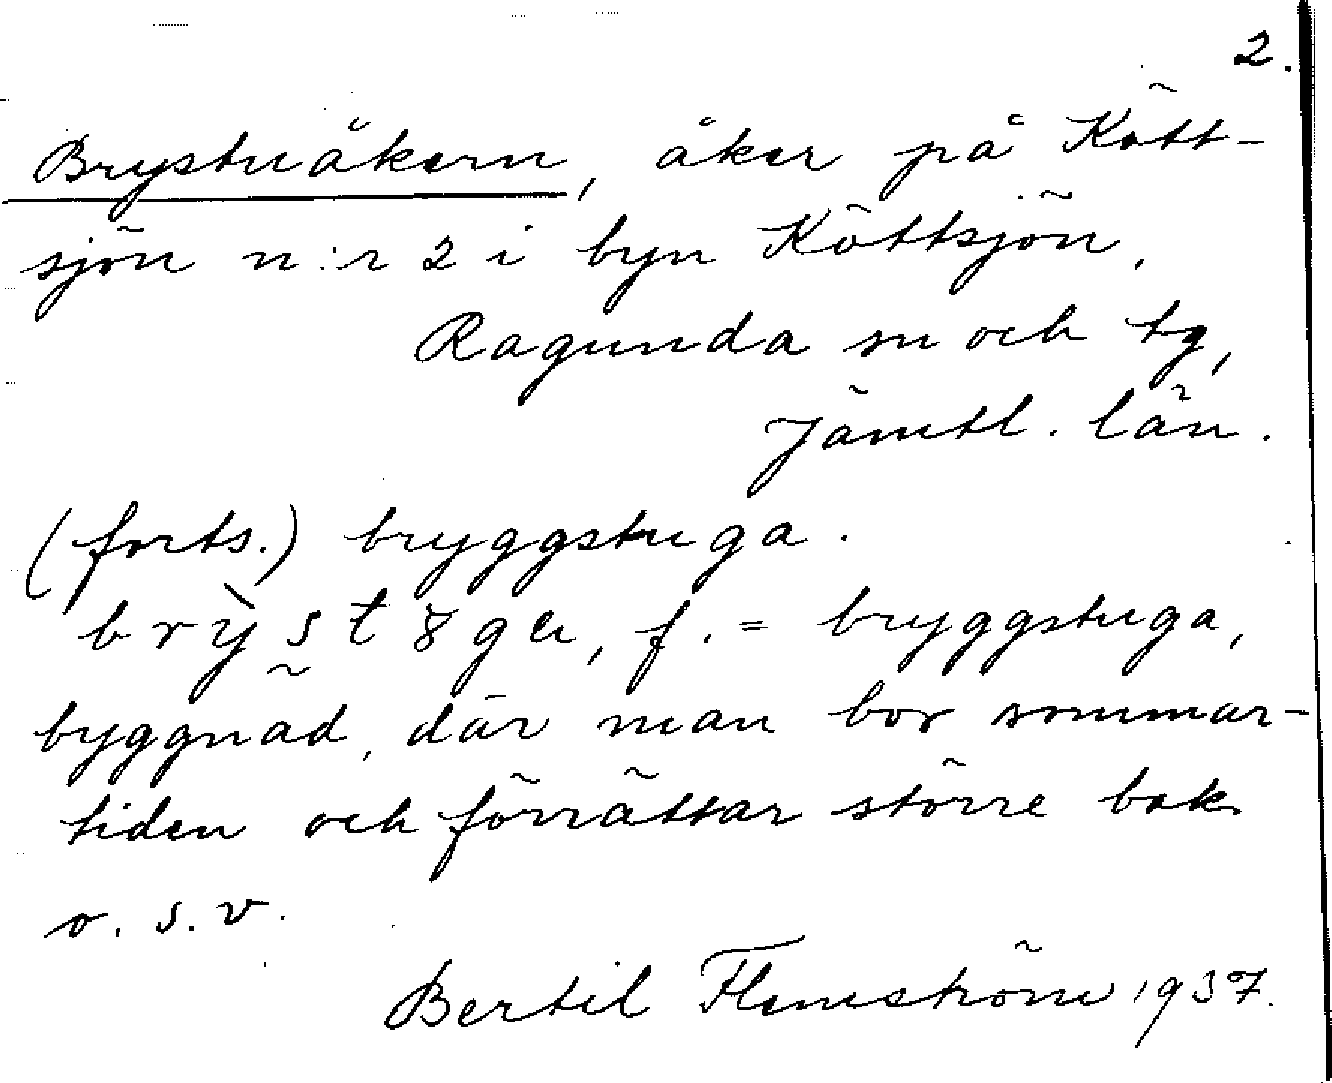 2.
Brystuåkern, åker på Kött-
sjön n:r 2 i byn Köttsjön,
Ragunda sn och tg,
Jämtl. län.
(forts.) bryggstuga.
brỳstȣga, f. = bryggstuga,
byggnad, där man bor sommar-
tiden och förrättar större bak
o. s. v.
Bertil Flemström 1937.